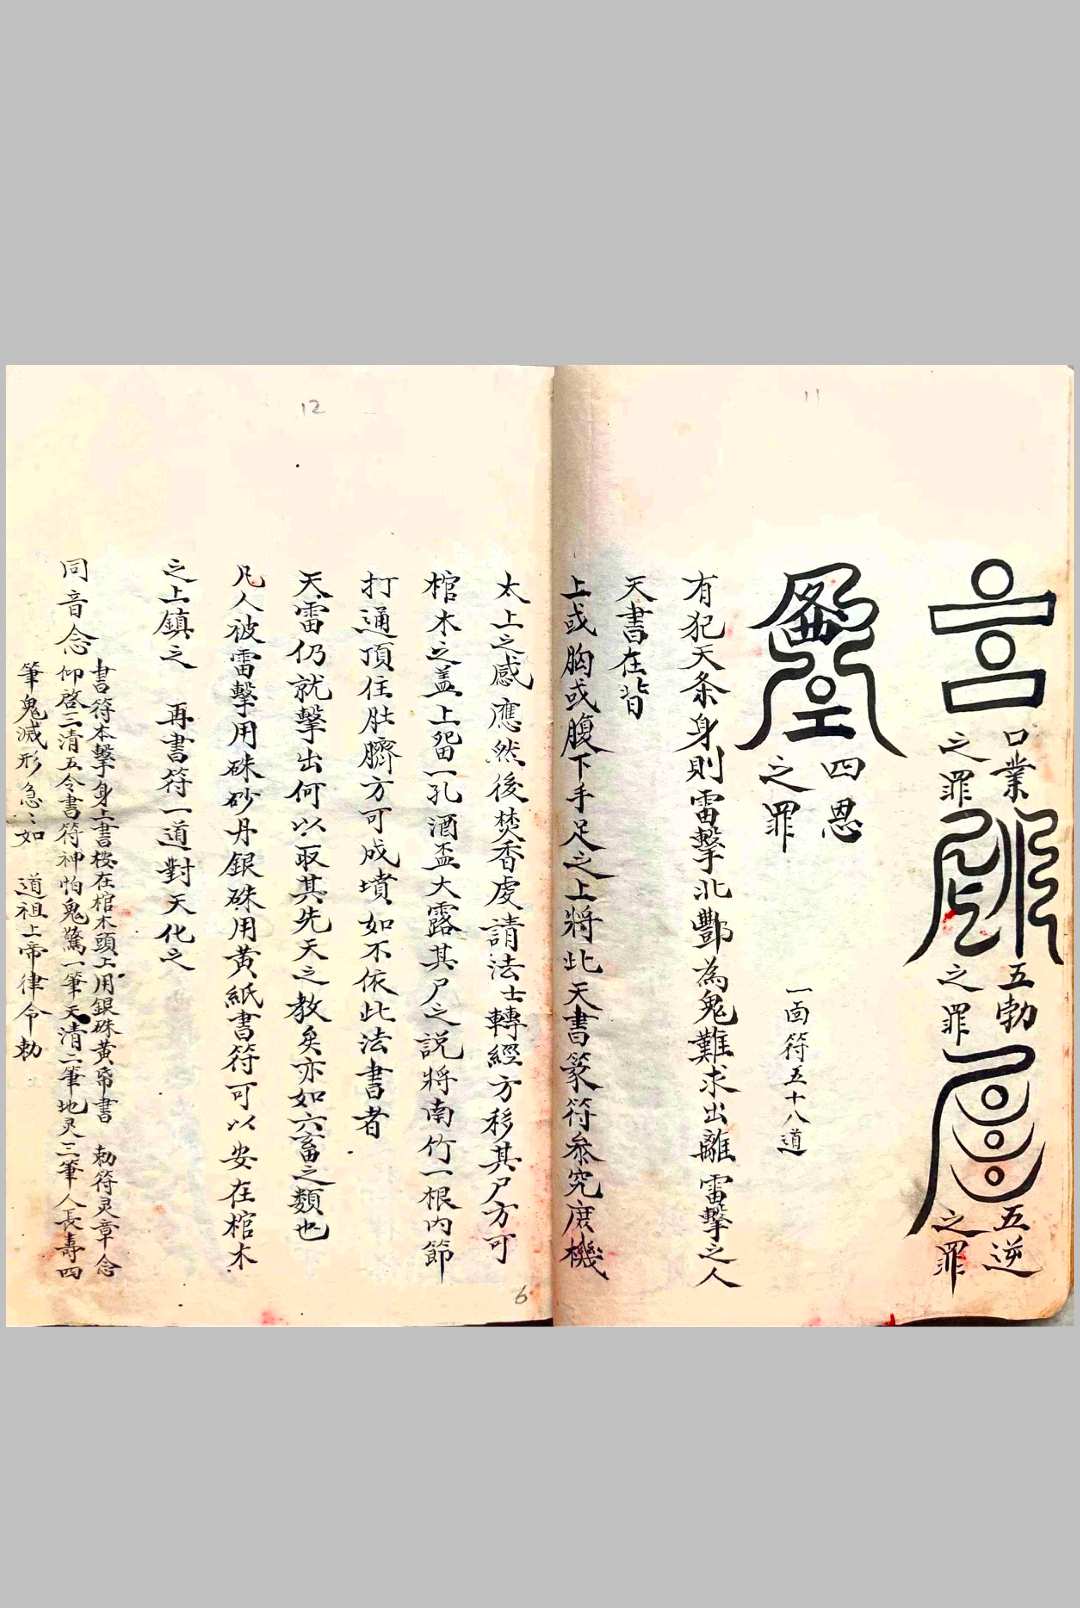 11
口業
之罪
五勃
之罪
五逆
之罪
四恩
之罪
一面符五十八道
有犯天条身則雷擊北酆為鬼難求出離雷擊之人
天書在背
上或胸或腹下手足之上將此天書篆符叅究庶機
12
太上之感應然後焚香虔請法士轉經方移其尸方可
棺木之盖上畄一孔酒盃大露其尸之説將南竹一根内節
打通頂住肚臍方可成墳如不依此法書者
天雷仍就擊出何以取其先天之教矣亦如六畜之類也
凡人被雷擊用硃砂丹銀硃用黄紙書符可以安在棺木
之上鎮之 再書符一道對天化之
同音念
書符本擊身上書按在棺木頭上用銀硃黄帋書 勅符灵章念
仰啓三清五令書符神怕鬼驚一筆天清二筆地灵三筆人長壽四
筆鬼滅形急〻如 道祖上帝律令勅
6